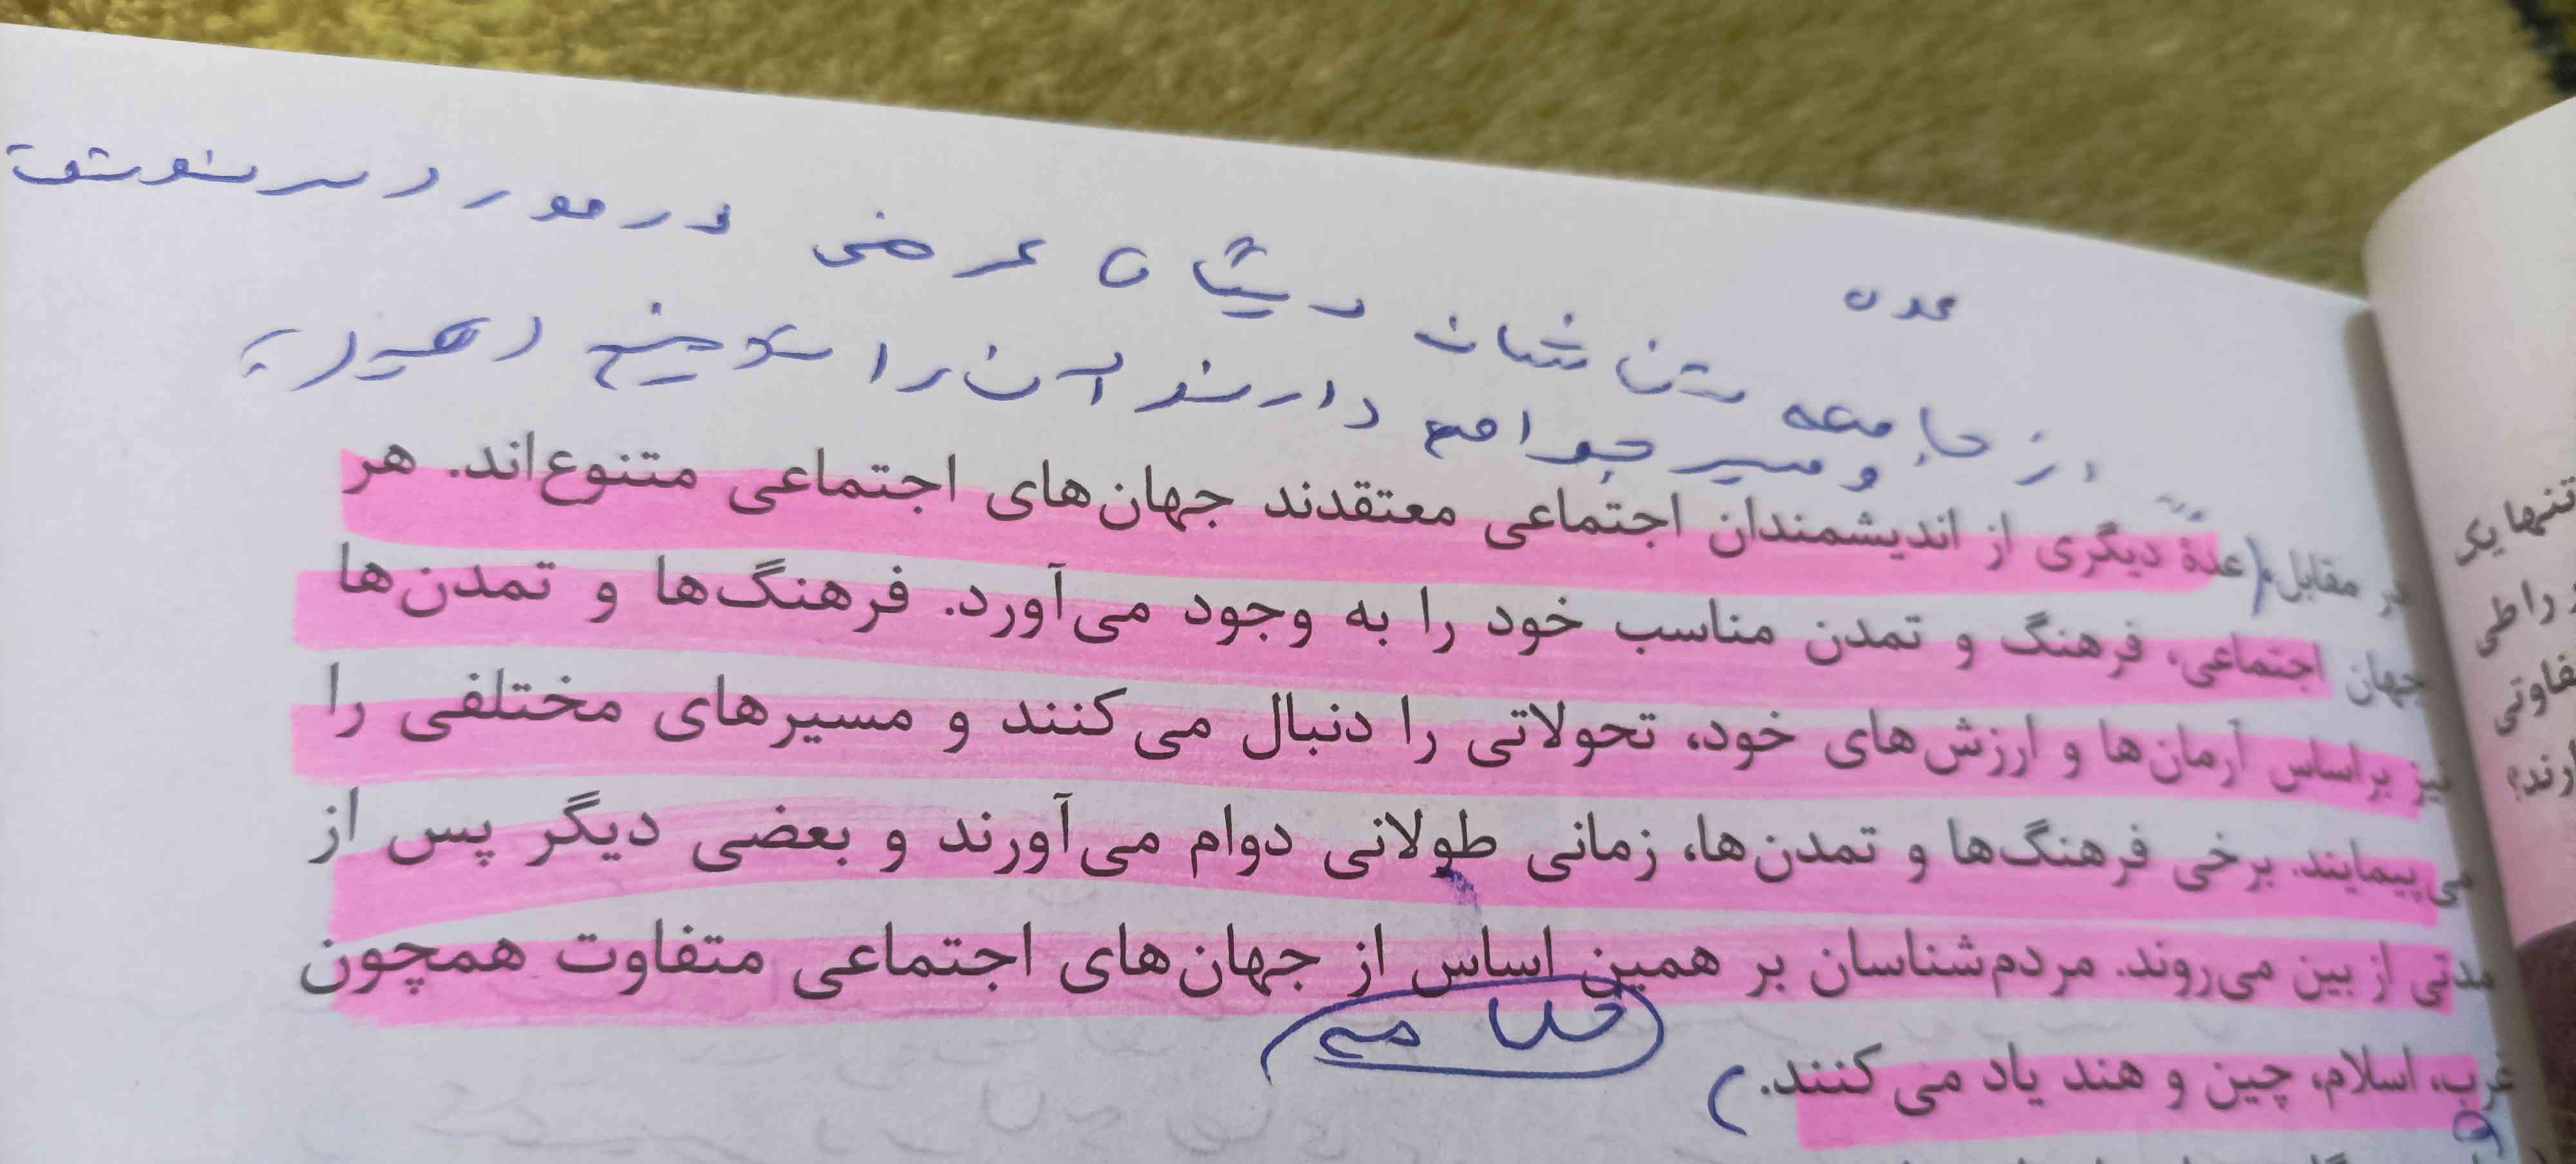 عده
از جامعه شناسان دیدگاه عرضی در مورد سرنوشت
و مسیر جوامع دارند آن را توضیح دهید؟
در مقابل، (عدهٔ دیگری از اندیشمندان اجتماعی معتقدند جهان‌های اجتماعی متنوع‌اند. هر
جهان اجتماعی، فرهنگ و تمدن مناسب خود را به وجود می‌آورد. فرهنگ‌ها و تمدن‌ها
نیز براساس آرمان‌ها و ارزش‌های خود، تحولاتی را دنبال می‌کنند و مسیرهای مختلفی را
می‌پیمایند. برخی فرهنگ‌ها و تمدن‌ها، زمانی طولانی دوام می‌آورند و بعضی دیگر پس از
مدتی از بین می‌روند. مردم‌شناسان بر همین اساس از جهان‌های اجتماعی متفاوت همچون
غرب، اسلام، چین و هند یاد می‌کنند.)
تنها یک
را طی